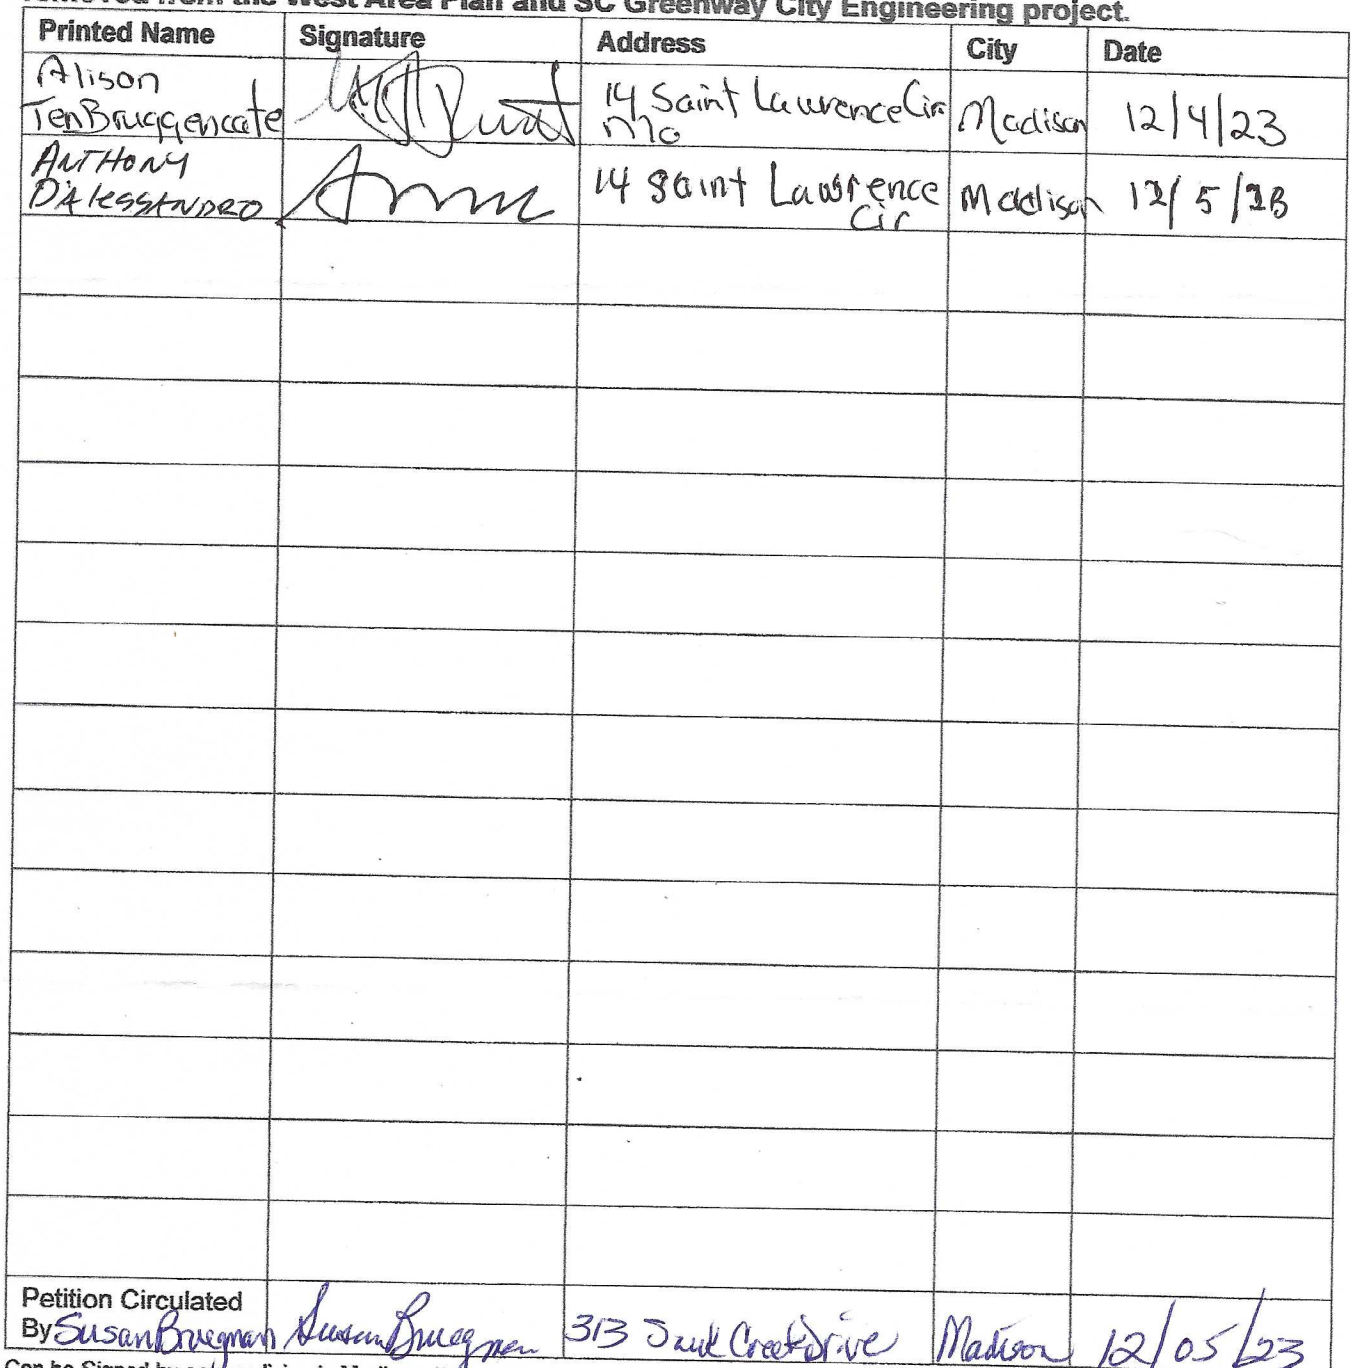 removed from the West Area Plan and SC Greenway City Engineering project.
Printed Name Signature Address City Date
Alison
TenBruggencate 14 Saint Lawrence Cir Madison 12/4/23
Mo
ANTHONY
D'ALESSANDRO 14 Saint Lawrence Madison 12/5/23
Cir
Petition Circulated
By Susan Bruegman Susan Bruegman 313 Sauk Creek Drive Madison 12/05/23